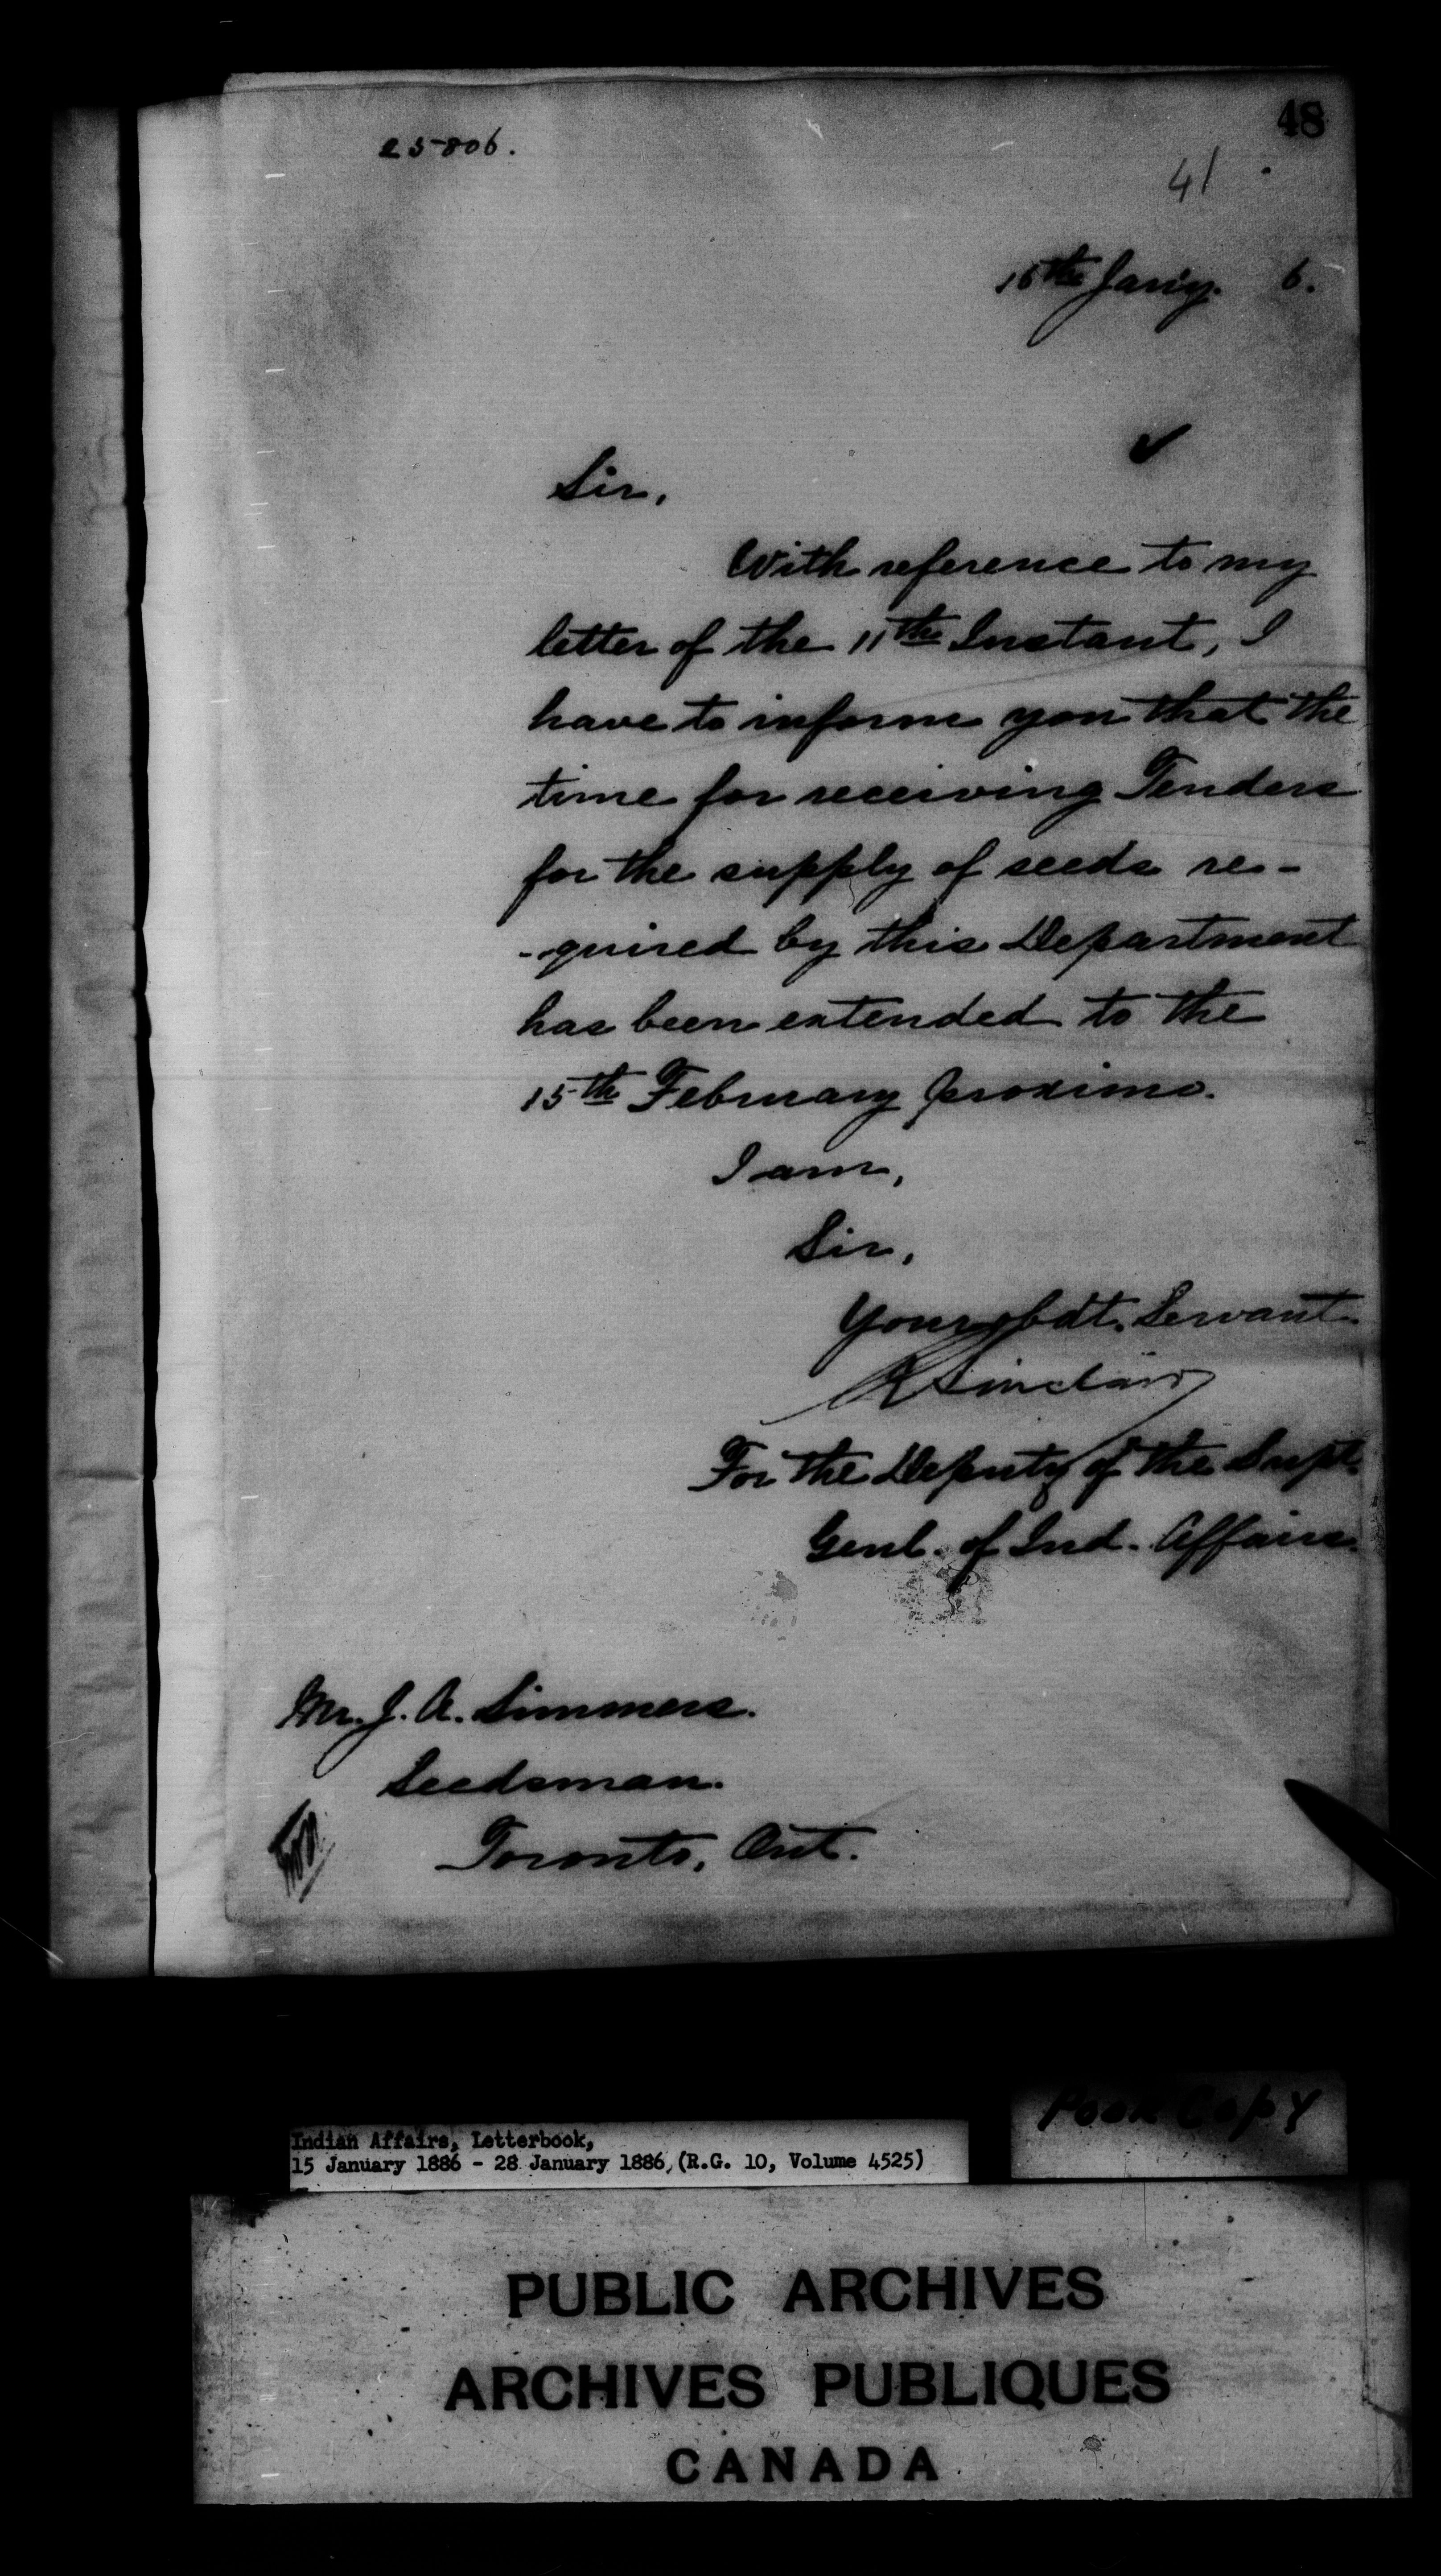 48
25806.
41
15th Jany. 6.
Sir,
With reference to my
letter of the 11th Instant, I
have to inform you that the
time for receiving Tenders
for the supply of seeds re-
-quired by this Department
has been extended to the
15th February proximo.
I am,
Sir,
Your obdt. Servant.
R Sinclair
For the Deputy of the Supt.
Genl. of Ind. Affairs.
Mr. J. A. Simmers.
Seedsman.
Toronto, Ont.
Poor Copy
Indian Affairs, Letterbook,
15 January 1886 - 28 January 1886, (R.G. 10, Volume 4525)
PUBLIC ARCHIVES
ARCHIVES PUBLIQUES
CANADA